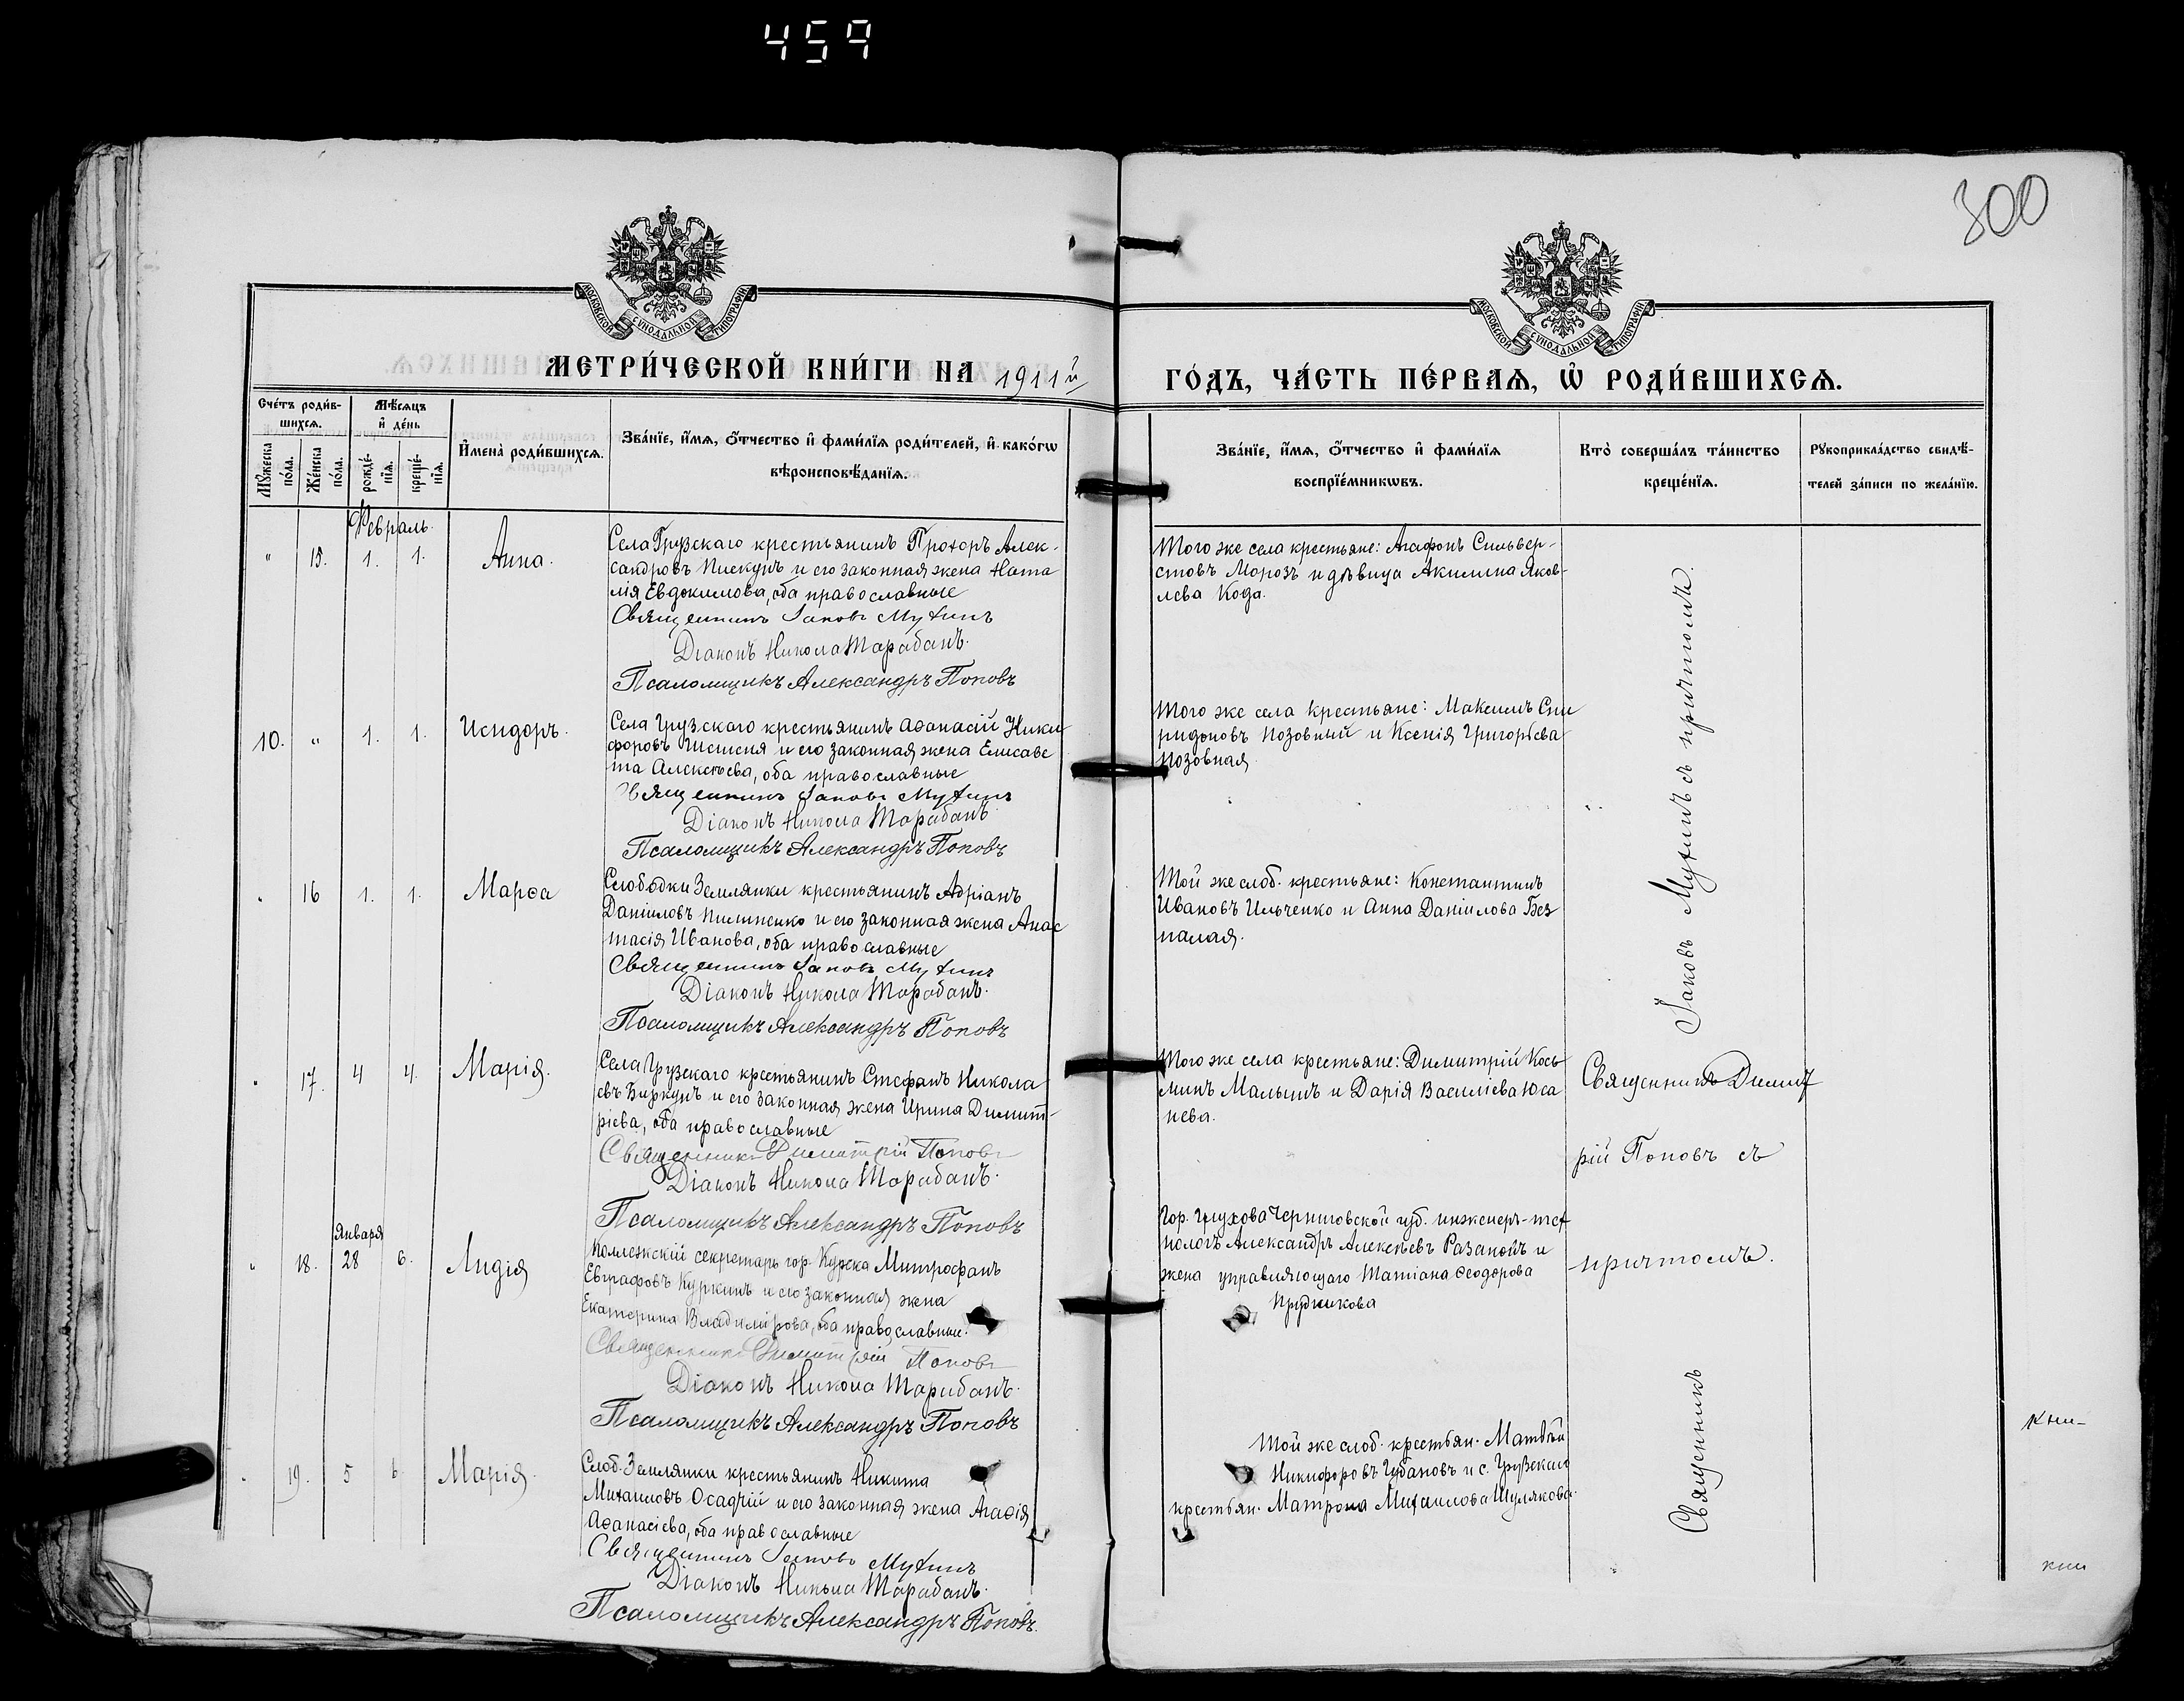 459
300
МОСКОВСКОЙ СѴНОДАЛЬНОЙ ТИПОГРАФІИ
МОСКОВСКОЙ СѴНОДАЛЬНОЙ ТИПОГРАФІИ
МЕТРИ́ЧЕСКОЙ КНИ́ГИ НА 1911й
ГО́ДЪ, ЧА́СТЬ ПЕ́РВАѦ, Ѡ҆ РОДИ́ВШИХСѦ.
Сче́тъ роди́в-
шихсѧ.
Мꙋ́жеска по́ла.
Же́нска по́ла.
Мѣ́сѧцъ
и҆ де́нь
рожде́-
нїѧ.
креще́-
нїѧ.
И҆мена̀ роди́вшихсѧ.
Зва́нїе, и҆́мѧ, ѻ҆́тчество и҆ фами́лїѧ роди́телей, и҆ како́гѡ
вѣроисповѣ́данїѧ.
Зва́нїе, и҆́мѧ, ѻ҆́тчество и҆ фами́лїѧ
воспрїе́мникѡвъ.
Кто̀ соверша́лъ та́инство
креще́нїѧ.
Рꙋкоприкла́дство свидѣ́-
телей за́писи по жела́нїю.
Февраль.
" 15. 1. 1. Анна.
Села Грузскаго крестьянинъ Прохоръ Алек-
сандровъ Пискунъ и его законная жена Ната
лія Евдокимова, оба православные
Священникъ Іаковъ Мухинъ
Діаконъ Никола Тарабанъ.
Псаломщикъ Александръ Поповъ
Того же села крестьяне: Агафонъ Сильвер-
стовъ Морозъ и дѣвица Акилина Яков-
лева Кода.
10. " 1. 1. Исидоръ.
Села Грузскаго крестьянинъ Аѳанасій Ники
форовъ и его законная жена Елисаве
та Алексѣева, оба православные
Священникъ Іаковъ Мухинъ
Діаконъ Никола Тарабанъ.
Псаломщикъ Александръ Поповъ
Того же села крестьяне: Максимъ Спи
ридоновъ Позовный и Ксенія Григорьева
Позовная
" 16 1. 1. Марѳа
Слободки Землянки крестьянинъ Адріанъ
Даніиловъ и его законная жена Анас
тасія Иванова, оба православные
Священникъ Іаковъ Мухинъ
Діаконъ Никола Тарабанъ.
Псаломщикъ Александръ Поповъ
Той же слоб. крестьяне: Константинъ
Ивановъ Ильченко и Анна Даніилова Без
палая.
Священникъ Іаковъ Мухинъ съ причтомъ.
" 17. 4 4. Марія.
Села Грузскаго крестьянинъ Стефанъ Никола
евъ Биркунъ и его законная жена Ирина Димит-
ріева, оба православные
Священникъ Димитрій Поповъ
Діаконъ Никола Тарабанъ.
Псаломщикъ Александръ Поповъ
Того же села крестьяне: Димитрій Кось
минъ Малышъ и Дарія Василіева Юса
нева.
Священникъ Димит
рій Поповъ съ
причтомъ.
Января
" 18. 28 6. Лидія
Коллежскій секретарь гор. Курска Митрофанъ
Евграфовъ Куркинъ и его законная жена
Екатерина Владимірова, оба православные.
Священникъ Димитрій Поповъ
Діаконъ Никола Тарабанъ.
Псаломщикъ Александръ Поповъ
Гор. Глухова Черниговской губ. инженеръ-тех
нологъ Александръ Алексѣевъ Разановъ и
жена управляющаго Татіана Ѳеодорова
Прудникова
" 19. 5 6. Марія.
Слоб. Землянки крестьянинъ Никита
Михаиловъ Осадчій и его законная жена Агаѳія
Аѳанасіева, оба православные
Священникъ Іаковъ Мухинъ
Діаконъ Никола Тарабанъ.
Псаломщикъ Александръ Поповъ.
Той же слоб. крестьян. Матвѣй
Никифоровъ Губановъ и с. Грузскаго
крестьян. Матрона Михаилова Шулякова.
Кни-
кни